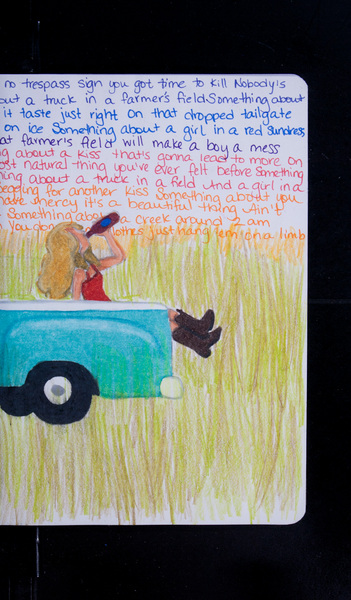 no trespass sign you got time to kill Nobody's
out a truck in a farmer's field Something about
it taste just right on that dropped tailgate
on ice Something about a girl in a red sundress
at farmer's field will make a boy a mess
ng about a kiss that's gonna lead to more on
ost natural thing you've ever felt before Something
hing about a truck in a field And a girl in a
begging for another kiss Something about you
nate mercy it's a beautiful thing Ain't
Something about a creek around 2 am
You clothes just hang 'em on a limb